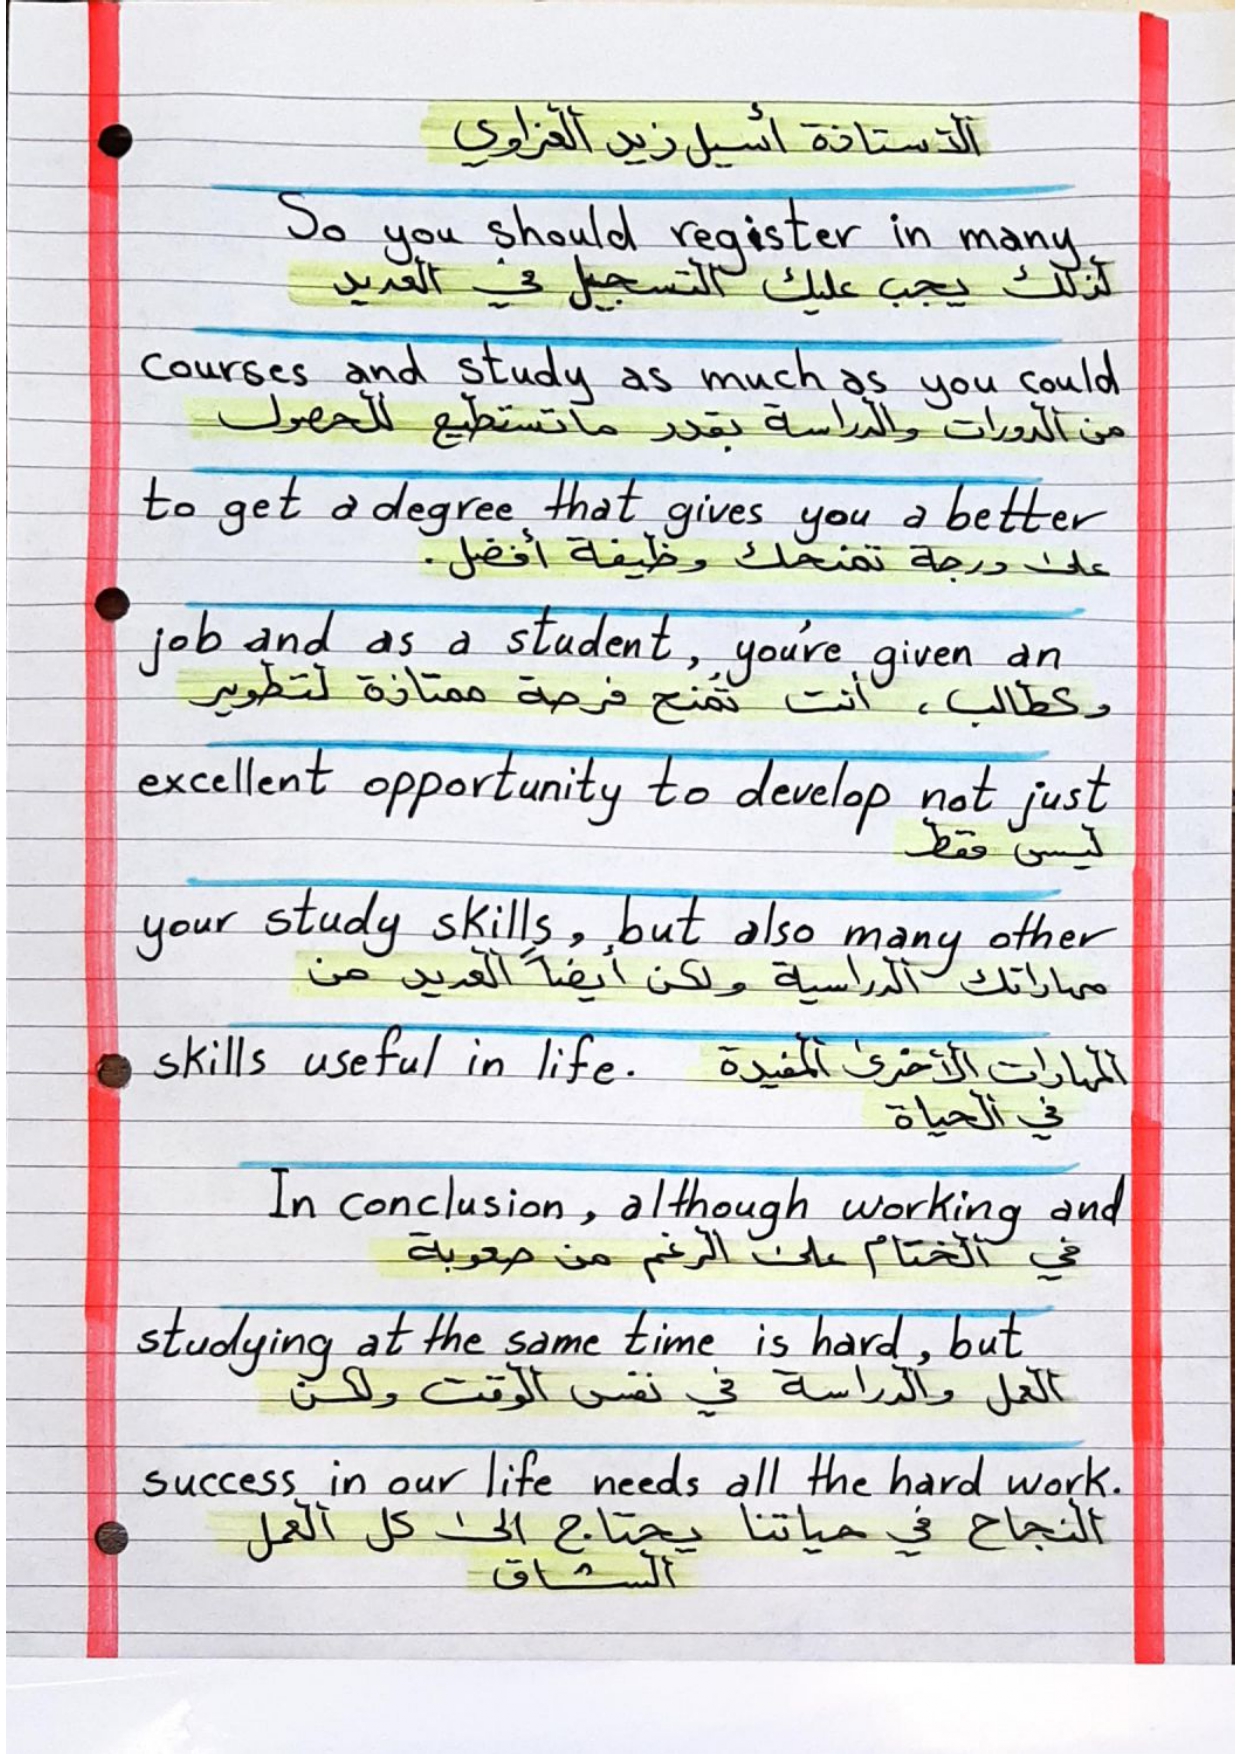 الاستاذة أسيل زيد العزاوي
So you should register in many
لذلك يجب عليك التسجيل في العديد
courses and study as much as you could
من الدورات والدراسة بقدر ماتستطيع للحصول
to get a degree that gives you a better
على درجة تمنحك وظيفة أفضل.
job and as a student, you're given an
وكطالب، أنت تُمنح فرصة ممتازة لتطوير
excellent opportunity to develop not just
ليس فقط
your study skills, but also many other
مهاراتك الدراسية ولكن أيضاً العديد من
skills useful in life. المهارات الأخرى المفيدة
في الحياة
In conclusion, although working and
في الختام على الرغم من صعوبة
studying at the same time is hard, but
العمل والدراسة في نفس الوقت ولكن
success in our life needs all the hard work.
النجاح في حياتنا يحتاج الى كل العمل
الشاق